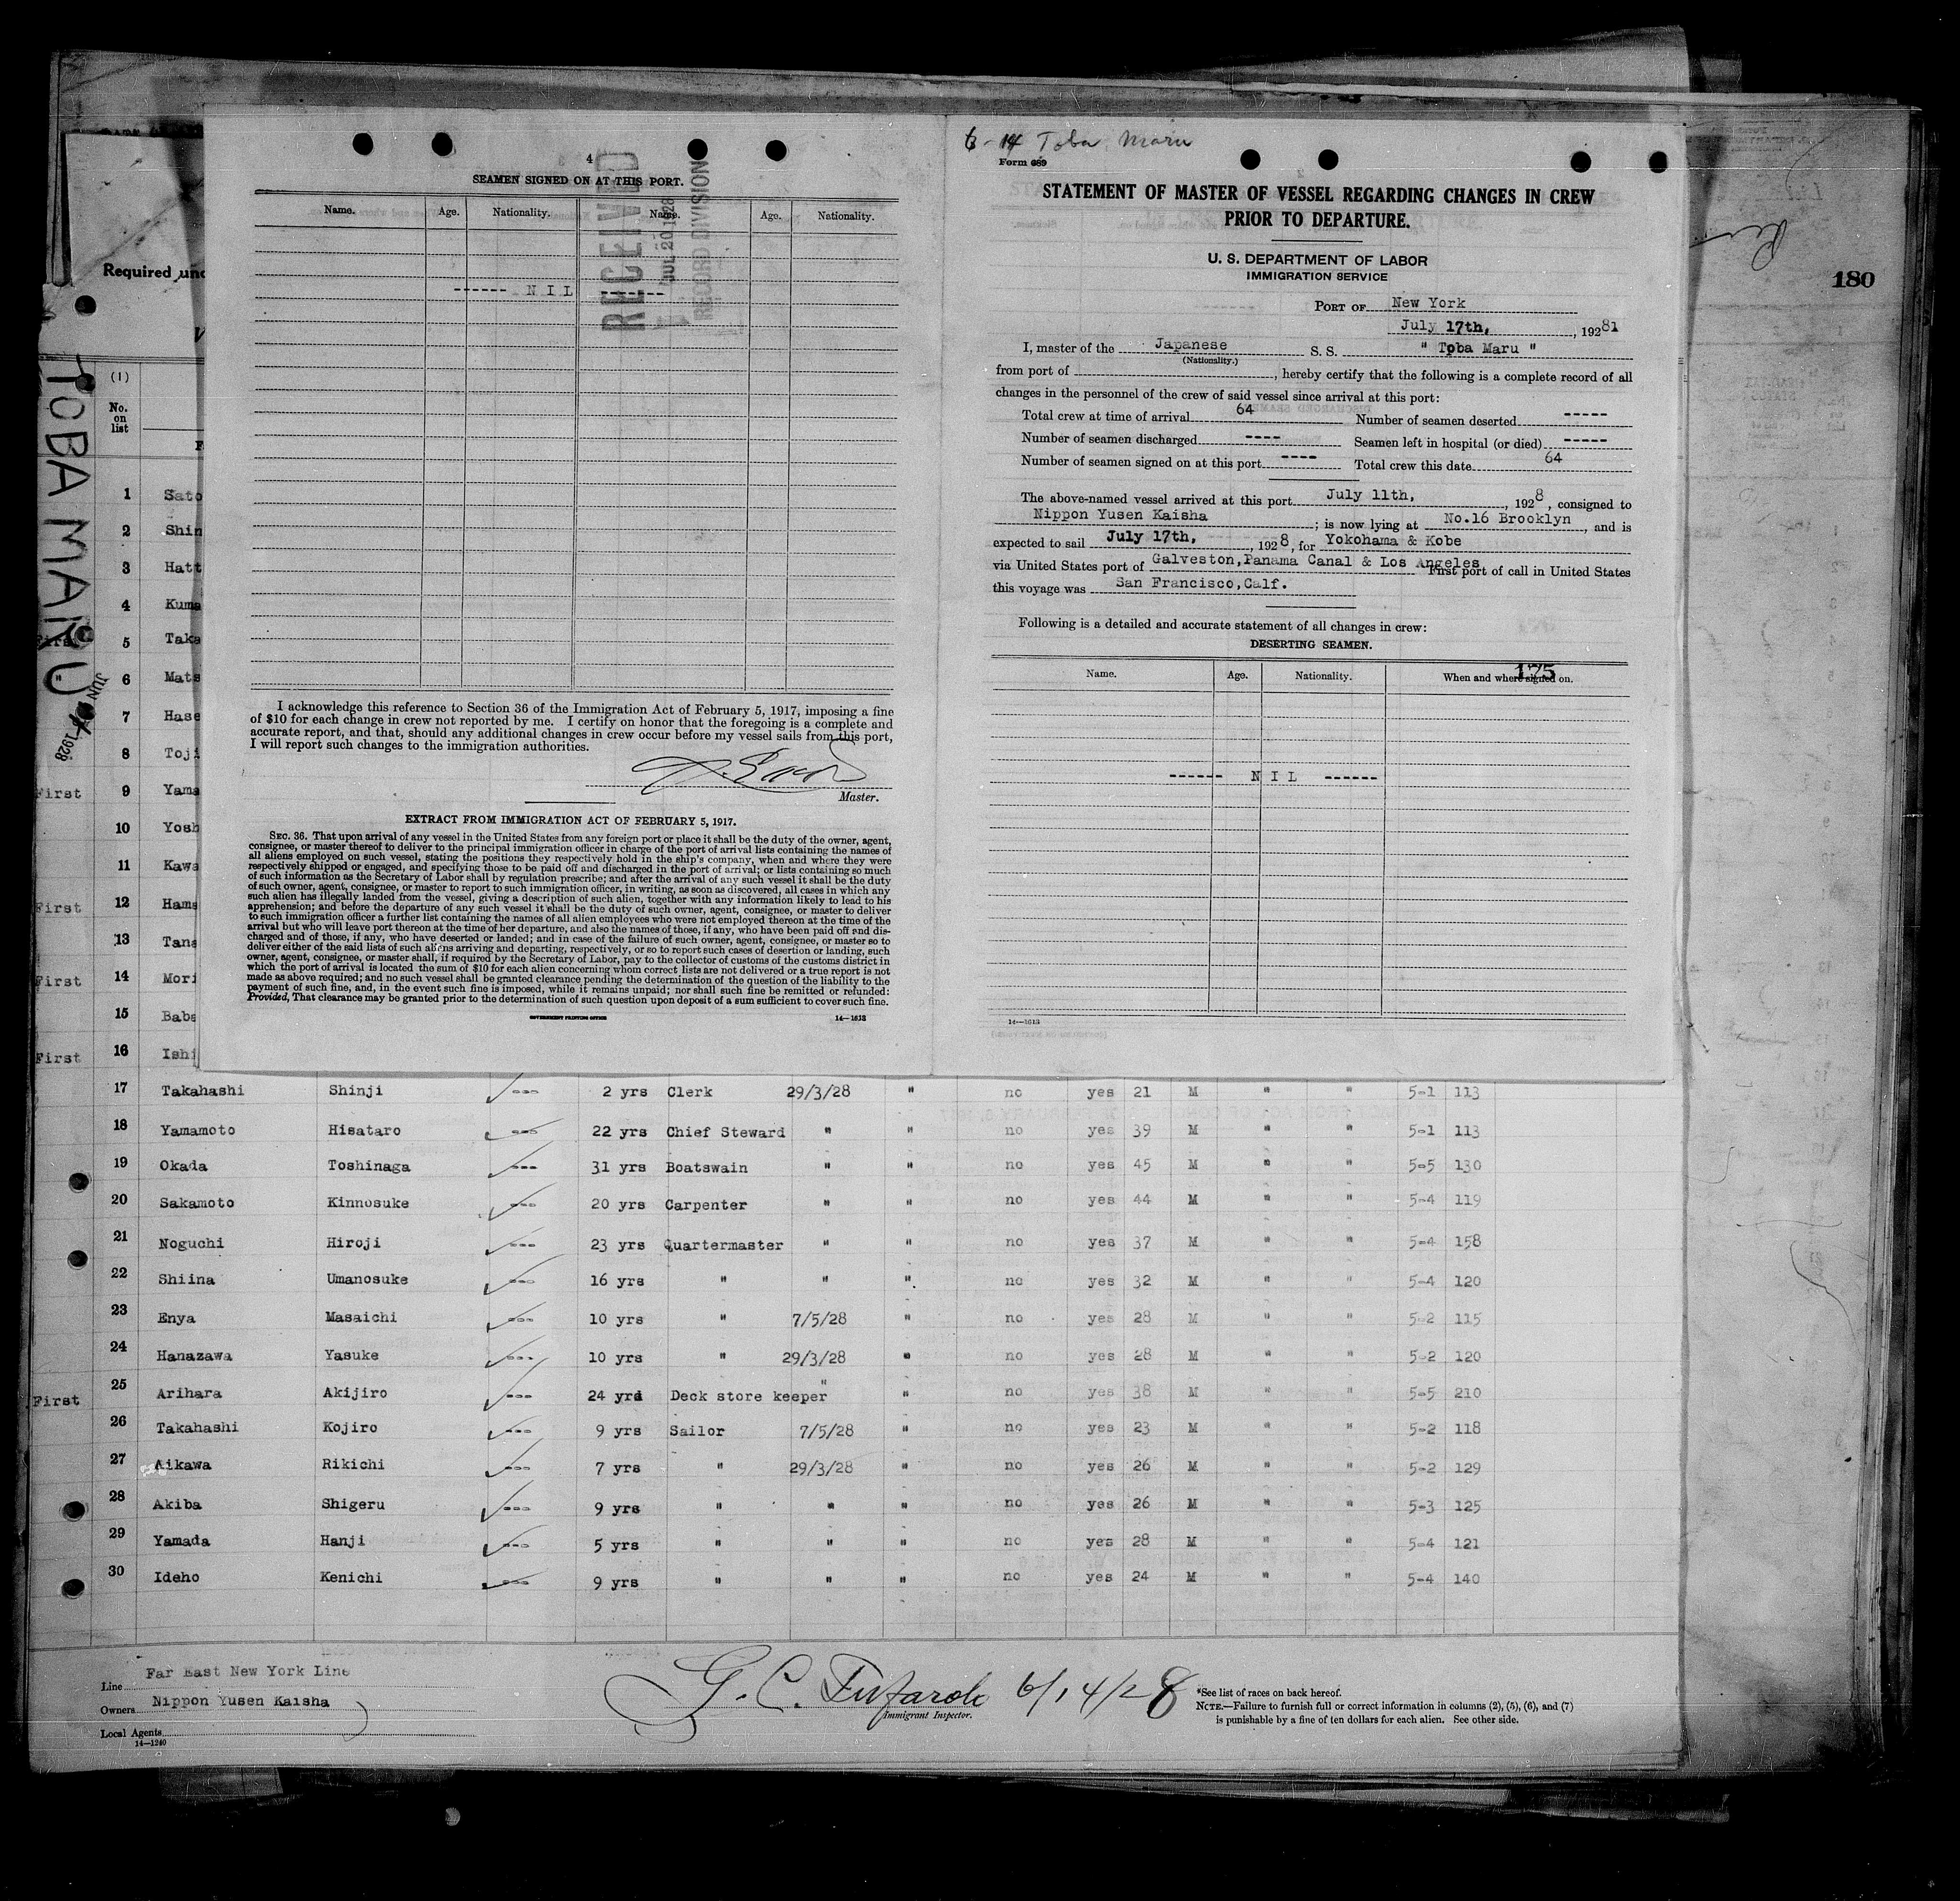 4
SEAMEN SIGNED ON AT THIS PORT.
Name. Age. Nationality. Name. Age. Nationality.
RECEIVED
JUL 20 1928
RECORD DIVISION
------ N I L ------
I acknowledge this reference to Section 36 of the Immigration Act of February 5, 1917, imposing a fine
of $10 for each change in crew not reported by me. I certify on honor that the foregoing is a complete and
accurate report, and that, should any additional changes in crew occur before my vessel sails from this port,
I will report such changes to the immigration authorities.
Master.
EXTRACT FROM IMMIGRATION ACT OF FEBRUARY 5, 1917.
SEC. 36. That upon arrival of any vessel in the United States from any foreign port or place it shall be the duty of the owner, agent,
consignee, or master thereof to deliver to the principal immigration officer in charge of the port of arrival lists containing the names of
all aliens employed on such vessel, stating the positions they respectively hold in the ship's company, when and where they were
respectively shipped or engaged, and specifying those to be paid off and discharged in the port of arrival; or lists containing so much
of such information as the Secretary of Labor shall by regulation prescribe; and after the arrival of any such vessel it shall be the duty
of such owner, agent, consignee, or master to report to such immigration officer, in writing, as soon as discovered, all cases in which any
such alien has illegally landed from the vessel, giving a description of such alien, together with any information likely to lead to his
apprehension; and before the departure of any such vessel it shall be the duty of such owner, agent, consignee, or master to deliver
to such immigration officer a further list containing the names of all alien employees who were not employed thereon at the time of the
arrival but who will leave port thereon at the time of her departure, and also the names of those, if any, who have been paid off and dis-
charged and of those, if any, who have deserted or landed; and in case of the failure of such owner, agent, consignee, or master so to
deliver either of the said lists of such aliens arriving and departing, respectively, or so to report such cases of desertion or landing, such
owner, agent, consignee, or master shall, if required by the Secretary of Labor, pay to the collector of customs of the customs district in
which the port of arrival is located the sum of $10 for each alien concerning whom correct lists are not delivered or a true report is not
made as above required; and no such vessel shall be granted clearance pending the determination of the question of the liability to the
payment of such fine, and, in the event such fine is imposed, while it remains unpaid; nor shall such fine be remitted or refunded:
Provided, That clearance may be granted prior to the determination of such question upon deposit of a sum sufficient to cover such fine.
GOVERNMENT PRINTING OFFICE 14—1613
6-14 Toba Maru
Form 689
STATEMENT OF MASTER OF VESSEL REGARDING CHANGES IN CREW
PRIOR TO DEPARTURE.
U. S. DEPARTMENT OF LABOR
IMMIGRATION SERVICE
PORT OF New York
July 17th, , 19281
I, master of the Japanese S. S. " Toba Maru "
(Nationality.)
from port of , hereby certify that the following is a complete record of all
changes in the personnel of the crew of said vessel since arrival at this port:
Total crew at time of arrival 64 Number of seamen deserted -----
Number of seamen discharged ---- Seamen left in hospital (or died) -----
Number of seamen signed on at this port ---- Total crew this date 64
The above-named vessel arrived at this port July 11th, , 1928, consigned to
Nippon Yusen Kaisha ; is now lying at No.16 Brooklyn , and is
expected to sail July 17th, , 1928, for Yokohama & Kobe
via United States port of Galveston,Panama Canal & Los Angeles First port of call in United States
this voyage was San Francisco,Calf.
Following is a detailed and accurate statement of all changes in crew:
DESERTING SEAMEN.
175
Name. Age. Nationality. When and where signed on.
------ N I L ------
14—1613
180
Required und
TOBA MARU
JUN 1928
(1)
No. on list
1 Sato
2 Shin
3 Hatt
4 Kuma
First 5 Taka
" 6 Mats
7 Hase
8 Toji
First 9 Yama
10 Yosh
11 Kawa
First 12 Hama
13 Tana
First 14 Mori
15 Baba
First 16 Ishi
17 Takahashi Shinji --- 2 yrs Clerk 29/3/28 " no yes 21 M " " 5-1 113
18 Yamamoto Hisataro --- 22 yrs Chief Steward " " no yes 39 M " " 5-1 113
19 Okada Toshinaga --- 31 yrs Boatswain " " no yes 45 M " " 5-5 130
20 Sakamoto Kinnosuke --- 20 yrs Carpenter " " no yes 44 M " " 5-4 119
21 Noguchi Hiroji --- 23 yrs Quartermaster " " no yes 37 M " " 5-4 158
22 Shiina Umanosuke --- 16 yrs " " " no yes 32 M " " 5-4 120
23 Enya Masaichi --- 10 yrs " 7/5/28 " no yes 28 M " " 5-2 115
24 Hanazawa Yasuke --- 10 yrs " 29/3/28 " no yes 28 M " " 5-2 120
First 25 Arihara Akijiro --- 24 yrs Deck store keeper " " no yes 38 M " " 5-5 210
26 Takahashi Kojiro --- 9 yrs Sailor 7/5/28 " no yes 23 M " " 5-2 118
27 Aikawa Rikichi --- 7 yrs " 29/3/28 " no yes 26 M " " 5-2 129
28 Akiba Shigeru --- 9 yrs " " " no yes 26 M " " 5-3 125
29 Yamada Hanji --- 5 yrs " " " no yes 28 M " " 5-4 121
30 Ideho Kenichi --- 9 yrs " " " no yes 24 M " " 5-4 140
Line Far East New York Line
Owners Nippon Yusen Kaisha
Local Agents
14—1240
G. C. 6/14/28
Immigrant Inspector.
*See list of races on back hereof.
NOTE.—Failure to furnish full or correct information in columns (2), (5), (6), and (7)
is punishable by a fine of ten dollars for each alien. See other side.